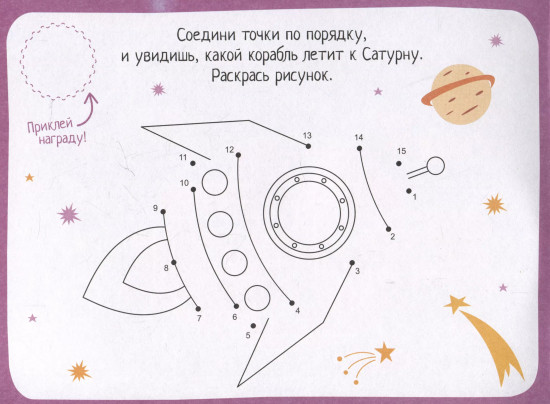 Соедини точки по порядку,
и увидишь, какой корабль летит к Сатурну.
Раскрась рисунок.
Приклей
награду!
13
14
12
15
11
10
1
9
2
8
3
7
6
4
5